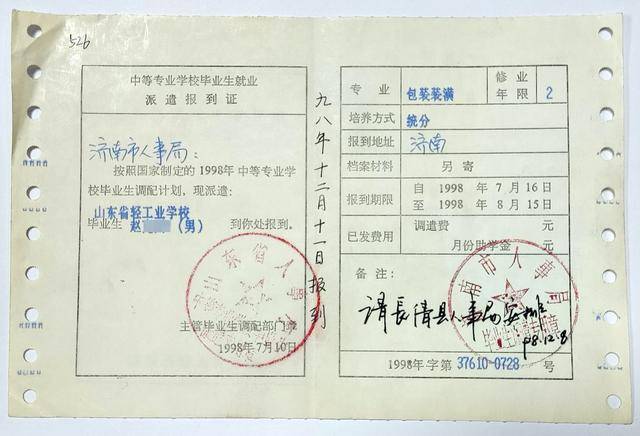 526
中等专业学校毕业生就业
派遣报到证
济南市人事局:
按照国家制定的1998年中等专业学
校毕业生调配计划,现派遣:
山东省轻工业学校
毕业生 赵 (男) 到你处报到。
主管毕业生调配部门章
1998年7月10日
山东省人
九八年十二月十一日报到
专业 包装装潢 修业年限 2
培养方式 统分
报到地址 济南
档案材料 另寄
报到期限 自 1998 年 7月 16日
至 1998 年 8月 15日
已发费用 调遣费 元
月份助学金 元
备注:
请長清县人事局安排
98.12.8
南市人事局
1998年字第 37610-0728 号